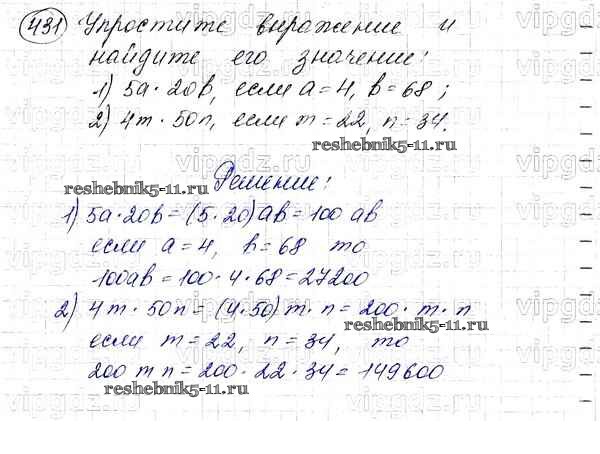 431 Упростите выражение и
найдите его значение:
1) 5a · 20b, если a = 4, b = 68;
2) 4m · 50n, если m = 22, n = 34.
reshebnik5-11.ru
Решение:
reshebnik5-11.ru
1) 5a · 20b = (5 · 20) ab = 100 ab
если a = 4, b = 68 то
100ab = 100 · 4 · 68 = 27200
2) 4m · 50n = (4 · 50) m · n = 200 · m · n
reshebnik5-11.ru
если m = 22, n = 34, то
200 m n = 200 · 22 · 34 = 149600
reshebnik5-11.ru